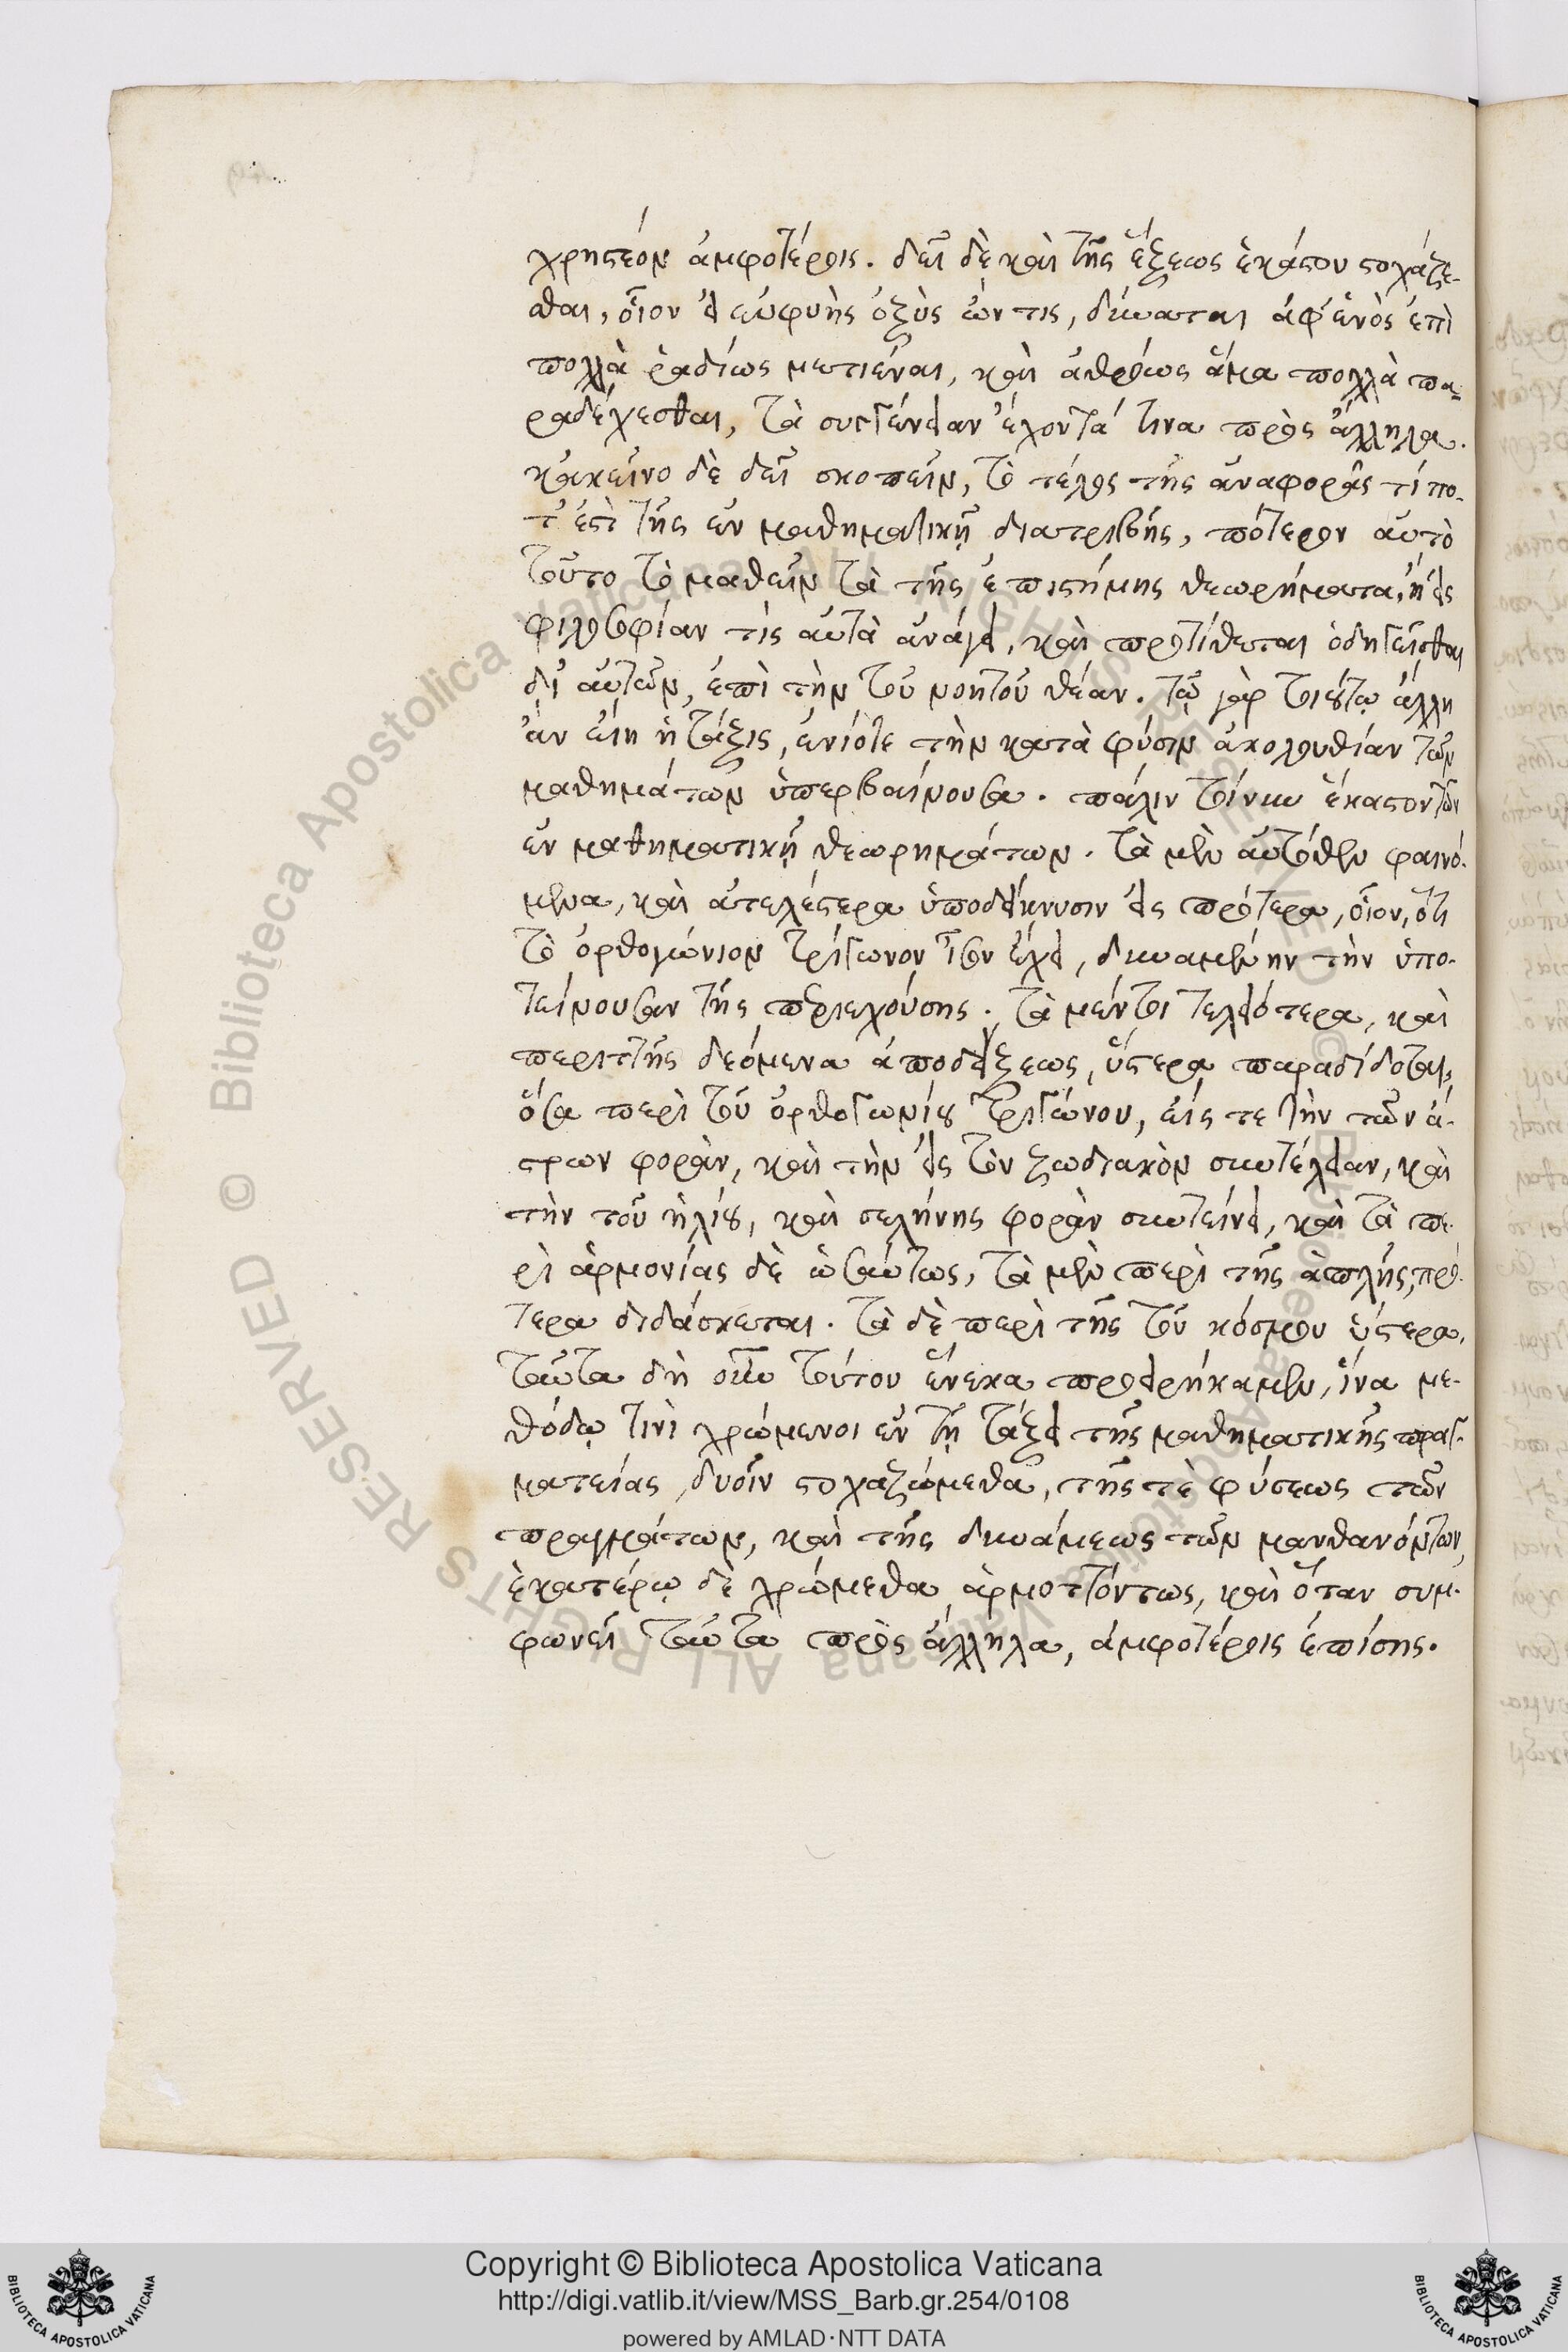 χρηστέον ἀμφοτέροις. δεῖ δὲ καὶ τῆς ἕξεως ἑκάστου στοχάζε-
σθαι, οἷον εἰ εὐφυὴς ὀξὺς ὤν τις, δύναται ἀφ' ἑνὸς ἐπὶ
πολλὰ ῥαδίως μετιέναι, καὶ ἀθρόως ἅμα πολλὰ πα-
ραδέχεσθαι, τὰ συγγένειαν ἔχοντά τινα πρὸς ἄλληλα.
κἀκεῖνο δὲ δεῖ σκοπεῖν, τὸ τέλος τῆς ἀναφορᾶς τί πο-
τ' ἐστὶ τῆς ἐν μαθηματικῇ διατριβῆς, πότερον αὐτὸ
τοῦτο τὸ μαθεῖν τὰ τῆς ἐπιστήμης θεωρήματα, ἢ εἰς
φιλοσοφίαν τις αὐτὰ ἀνάγει, καὶ προτίθεται ὁδηγεῖσθαι
δι' αὐτῶν, ἐπὶ τὴν τοῦ νοητοῦ θέαν. τῷ γὰρ τοιούτῳ ἄλλη
ἂν εἴη ἡ τάξις, ἐνίοτε τὴν κατὰ φύσιν ἀκολουθίαν τῶν
μαθημάτων ὑπερβαίνουσα. πάλιν τοίνυν ἕκαστον τῶν
ἐν μαθηματικῇ θεωρημάτων. τὰ μὲν αὐτόθεν φαινό-
μενα, καὶ ἀτελέστερα ὑποδείκνυσιν εἰς πρότερα, οἷον, ὅτι
τὸ ὀρθογώνιον τρίγωνον ἴσον ἔχει, δυναμένην τὴν ὑπο-
τείνουσαν τῆς περιεχούσης. τὰ μέντοι τελειότερα, καὶ
περιττῆς δεόμενα ἀποδείξεως, ὕστερα παραδίδοται,
ὅσα περὶ τοῦ ὀρθογωνίου τριγώνου, εἴς τε τὴν τῶν ἄ-
στρων φορὰν, καὶ τὴν εἰς τὸν ζωδιακὸν συντέλειαν, καὶ
τὴν τοῦ ἡλίου, καὶ σελήνης φορὰν συντείνει, καὶ τὰ πε-
ρὶ ἁρμονίας δὲ ὡσαύτως, τὰ μὲν περὶ τῆς ἁπλῆς, πρό-
τερα διδάσκεται. τὰ δὲ περὶ τῆς τοῦ κόσμου ὕστερα.
ταῦτα δὴ οὖν τούτου ἕνεκα προειρήκαμεν, ἵνα με-
θόδῳ τινὶ χρώμενοι ἐν τῇ τάξει τῆς μαθηματικῆς πραγ-
ματείας, δυοῖν στοχαζώμεθα, τῆς τὲ φύσεως τῶν
πραγμάτων, καὶ τῆς δυνάμεως τῶν μανθανόντων,
ἑκατέρῳ δὲ χρώμεθα ἁρμοττόντως, καὶ ὅταν συμ-
φωνεῖ ταῦτα πρὸς ἄλληλα, ἀμφοτέροις ἐπίσης.
© Biblioteca Apostolica Vaticana ALL RIGHTS RESERVED © Biblioteca Apostolica Vaticana ALL RIGHTS RESERVED
Copyright © Biblioteca Apostolica Vaticana
http://digi.vatlib.it/view/MSS_Barb.gr.254/0108
powered by AMLAD·NTT DATA
BIBLIOTECA APOSTOLICA VATICANA
BIBLIOTECA APOSTOLICA VATICANA